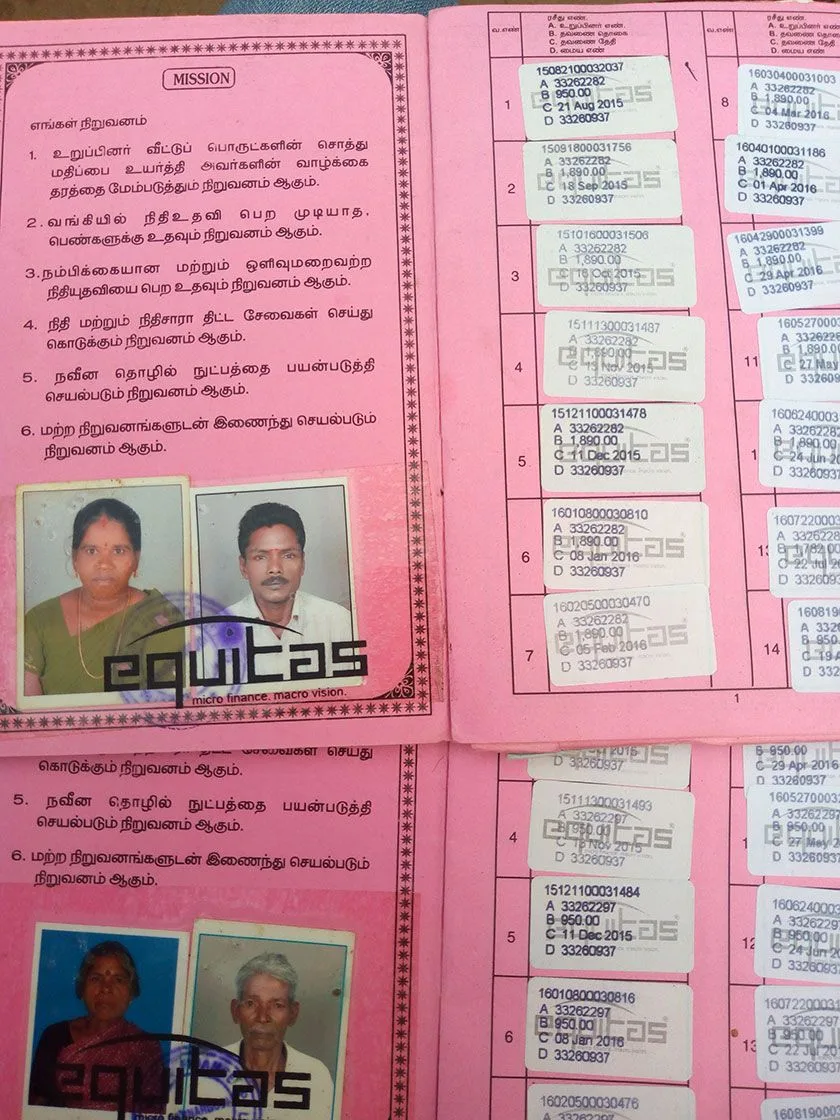 MISSION
எங்கள் நிறுவனம்
1. உறுப்பினர் வீட்டுப் பொருட்களின் சொத்து
மதிப்பை உயர்த்தி அவர்களின் வாழ்க்கை
தரத்தை மேம்படுத்தும் நிறுவனம் ஆகும்.
2. வங்கியில் நிதிஉதவி பெற முடியாத,
பெண்களுக்கு உதவும் நிறுவனம் ஆகும்.
3. நம்பிக்கையான மற்றும் ஒளிவுமறைவற்ற
நிதியுதவியை பெற உதவும் நிறுவனம் ஆகும்.
4. நிதி மற்றும் நிதிசாரா திட்ட சேவைகள் செய்து
கொடுக்கும் நிறுவனம் ஆகும்.
5. நவீன தொழில் நுட்பத்தை பயன்படுத்தி
செயல்படும் நிறுவனம் ஆகும்.
6. மற்ற நிறுவனங்களுடன் இணைந்து செயல்படும்
நிறுவனம் ஆகும்.
equitas
micro finance. macro vision.
வ.எண்
ரசீது எண்.
A. உறுப்பினர் எண்.
B. தவணை தொகை
C. தவணை தேதி
D. மைய எண்
1
15082100032037
A 33262282
B 950.00
C 21 Aug 2015
D 33260937
2
15091800031756
A 33262282
B 1,890.00
C 18 Sep 2015
D 33260937
3
15101600031506
A 33262282
B 1,890.00
C 16 Oct 2015
D 33260937
4
15111300031487
A 33262282
B 1,890.00
C 13 Nov 2015
D 33260937
5
15121100031478
A 33262282
B 1,890.00
C 11 Dec 2015
D 33260937
6
16010800030810
A 33262282
B 1,890.00
C 08 Jan 2016
D 33260937
7
16020500030470
A 33262282
B 1,890.00
C 05 Feb 2016
D 33260937
வ.எண்
ரசீது எண்.
A. உறுப்பினர்
B. தவணை தொகை
C. தவணை தேதி
D. மைய எண்
8
16030400031003
A 33262282
B 1,890.00
C 04 Mar 2016
D 33260937
16040100031186
A 33262282
B 1,890.00
C 01 Apr 2016
D 33260937
16042900031399
A 33262282
B 1,890.00
C 29 Apr 2016
D 33260937
11
1605270003
A 3326228
B 1,890.00
C 27 May
D 332609
1606240003
A 33262282
B 1,890.00
C 24 Jun 20
D 33260937
16072200
A 3326228
C 22 Jul 20
D 33260937
14
160819
A 33262
B 950.
D 3326
1
கொடுக்கும் நிறுவனம் ஆகும்.
5. நவீன தொழில் நுட்பத்தை பயன்படுத்தி
செயல்படும் நிறுவனம் ஆகும்.
6. மற்ற நிறுவனங்களுடன் இணைந்து செயல்படும்
நிறுவனம் ஆகும்.
equitas
D 33260937
4
15111300031493
A 33262297
B 950.00
C 13 Nov 2015
D 33260937
5
15121100031484
A 33262297
B 950.00
C 11 Dec 2015
D 33260937
6
16010800030816
A 33262297
B 950.00
C 08 Jan 2016
D 33260937
16020500030476
B 950.00
C 29 Apr 2016
D 33260937
1605270003
A 33262297
B 950.00
C 27 May 2
D 33260937
12
1606240003
A 33262297
B 950.00
C 24 Jun 20
D 33260937
13
1607220003
A 33262297
B 950.00
C 22 Jul 20
D 33260937